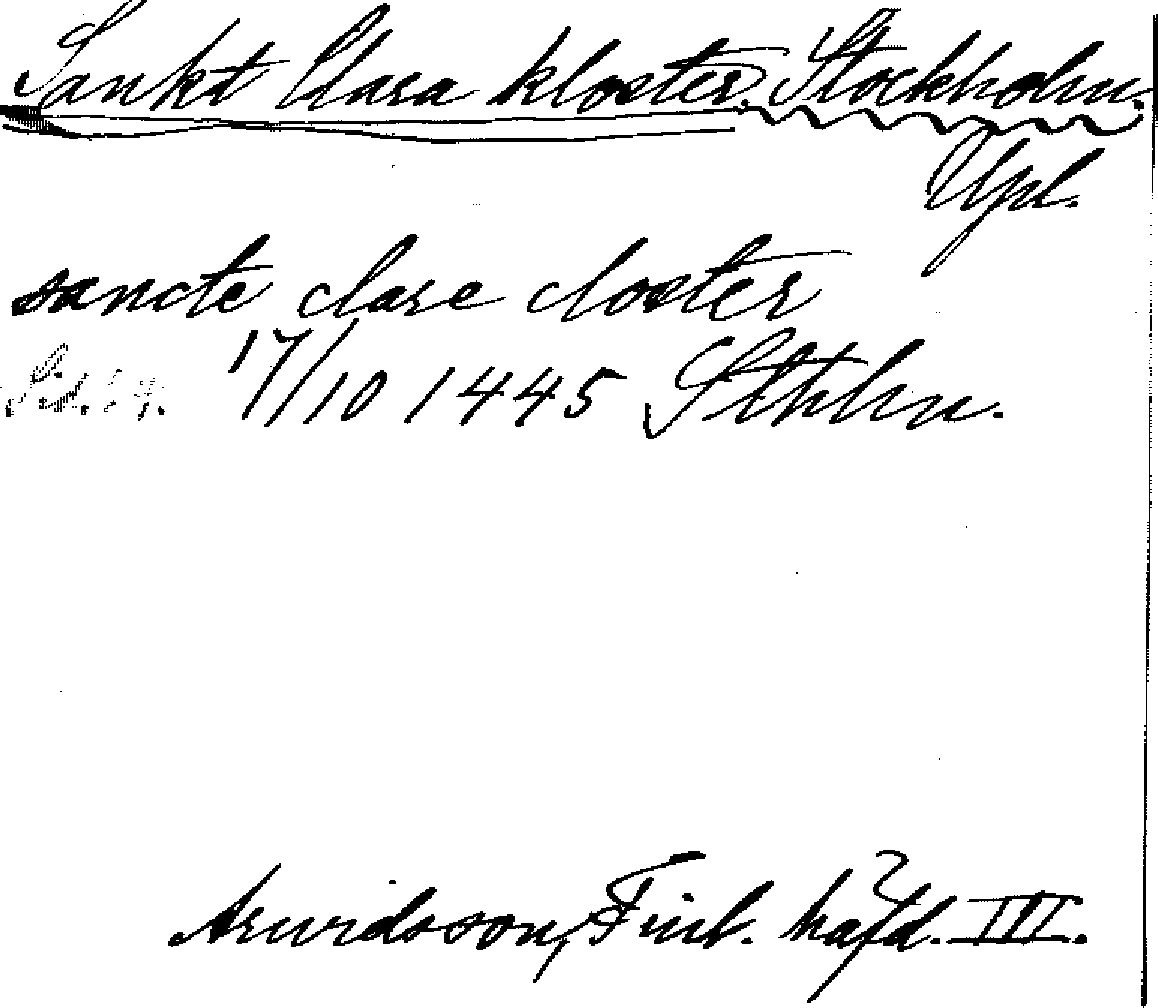 Sankt Clara kloster. Stockholm.
Upl.
sancte clare closter
Sid. 14. 17/10 1445 Sthlm.
Arwidsson, Finl. häfd. III.